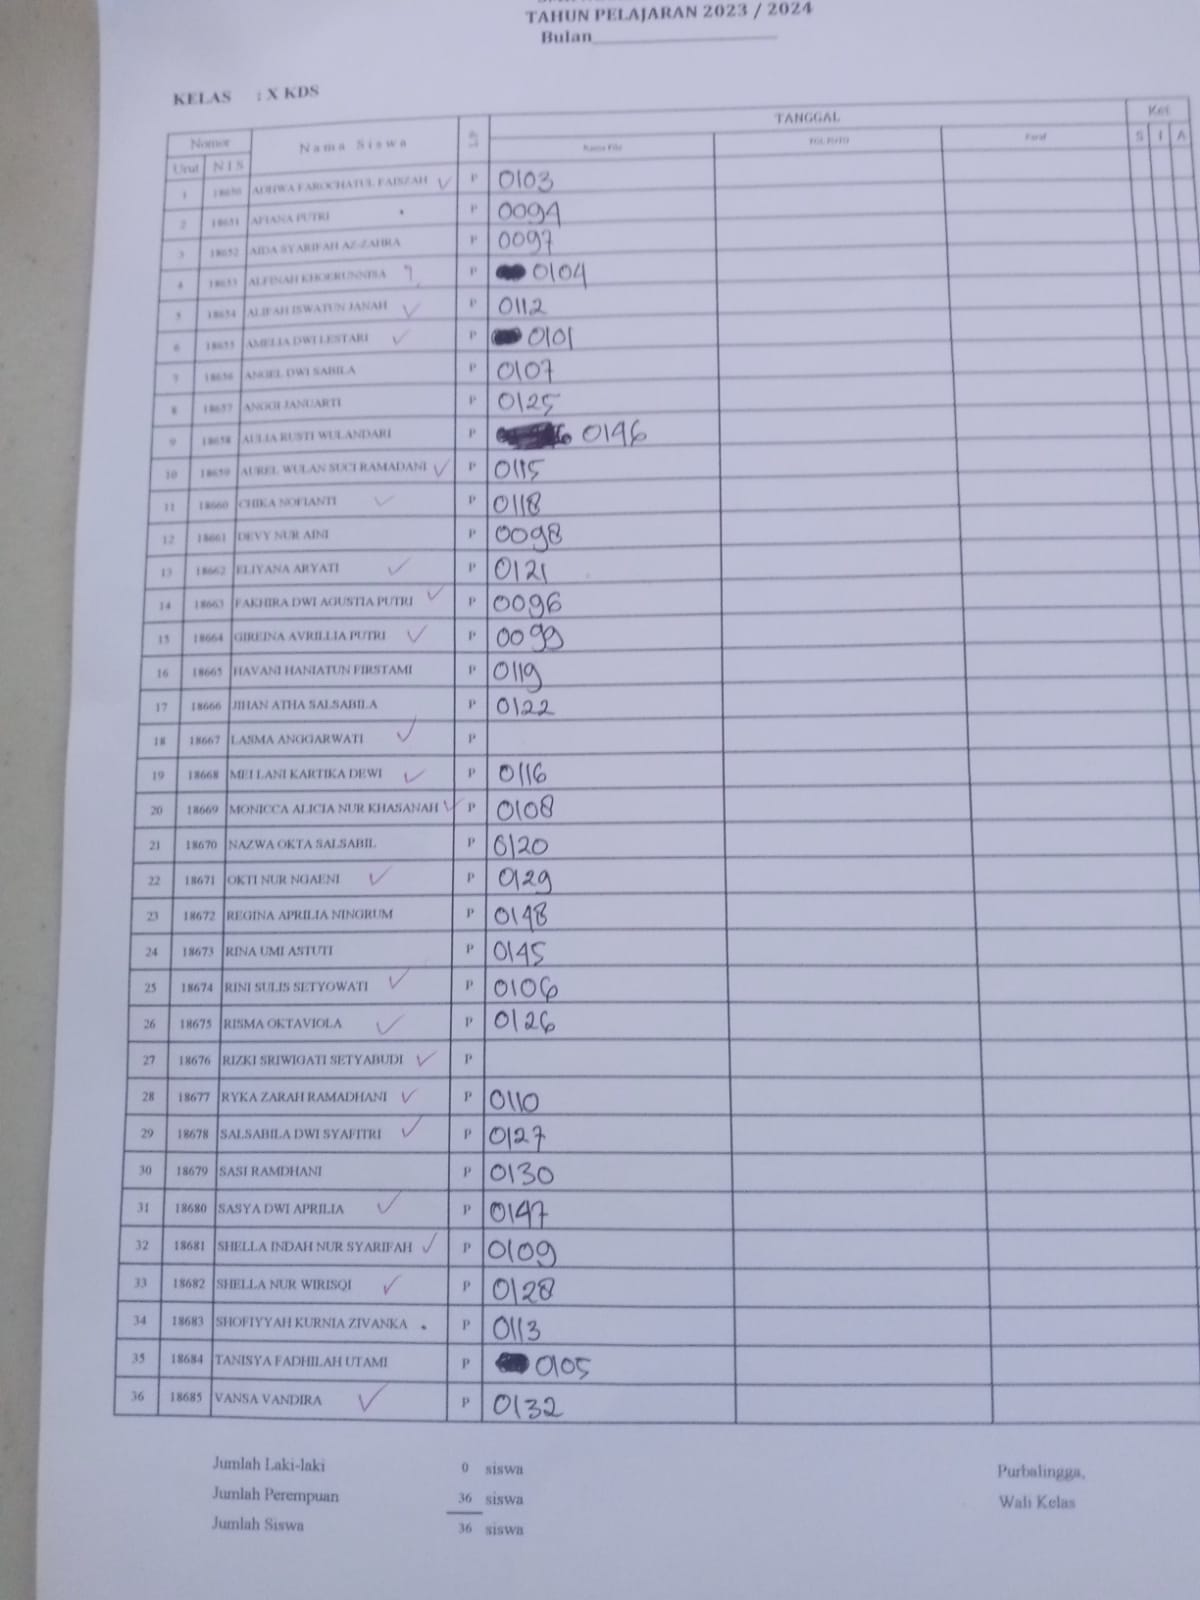 TAHUN PELAJARAN 2023 / 2024
Bulan
KELAS : X KDS
Nomor Nama Siswa L/P TANGGAL Ket
Urut NIS Nama File S I A
1 18650 ADHWA FAROCHATUL FAISZAH P 0103
2 18651 AFIANA PUTRI P 0094
3 18652 AIDA SYARIFAH AZ-ZAHRA P 0097
4 18653 ALFINAH KHOERUNNISA ? P 0104
5 18654 ALIFAH ISWATUN JANAH P 0112
6 18655 AMELIA DWI LESTARI P 0101
7 18656 ANGEL DWI SABILA P 0107
8 18657 ANGGI JANUARTI P 0125
9 18658 AULIA RUSTI WULANDARI P 0146
10 18659 AUREL WULAN SUCI RAMADANI P 0115
11 18660 CHIKA NOFIANTI P 0118
12 18661 DEVY NUR AINI P 0098
13 18662 ELIYANA ARYATI P 0121
14 18663 FAKHIRA DWI AGUSTIA PUTRI P 0096
15 18664 GIREINA AVRILLIA PUTRI P 0099
16 18665 HAVANI HANIATUN FIRSTAMI P 0119
17 18666 JIHAN ATHA SALSABILA P 0122
18 18667 LASMA ANGGARWATI P
19 18668 MEI LANI KARTIKA DEWI P 0116
20 18669 MONICCA ALICIA NUR KHASANAH P 0108
21 18670 NAZWA OKTA SALSABIL P 0120
22 18671 OKTI NUR NGAENI P 0129
23 18672 REGINA APRILIA NINGRUM P 0148
24 18673 RINA UMI ASTUTI P 0145
25 18674 RINI SULIS SETYOWATI P 0106
26 18675 RISMA OKTAVIOLA P 0126
27 18676 RIZKI SRIWIGATI SETYABUDI P
28 18677 RYKA ZARAH RAMADHANI P 0110
29 18678 SALSABILA DWI SYAFITRI P 0127
30 18679 SASI RAMDHANI P 0130
31 18680 SASYA DWI APRILIA P 0147
32 18681 SHELLA INDAH NUR SYARIFAH P 0109
33 18682 SHELLA NUR WIRISQI P 0128
34 18683 SHOFIYYAH KURNIA ZIVANKA P 0113
35 18684 TANISYA FADHILAH UTAMI P 0105
36 18685 VANSA VANDIRA P 0132
Jumlah Laki-laki 0 siswa Purbalingga,
Jumlah Perempuan 36 siswa Wali Kelas
Jumlah Siswa 36 siswa